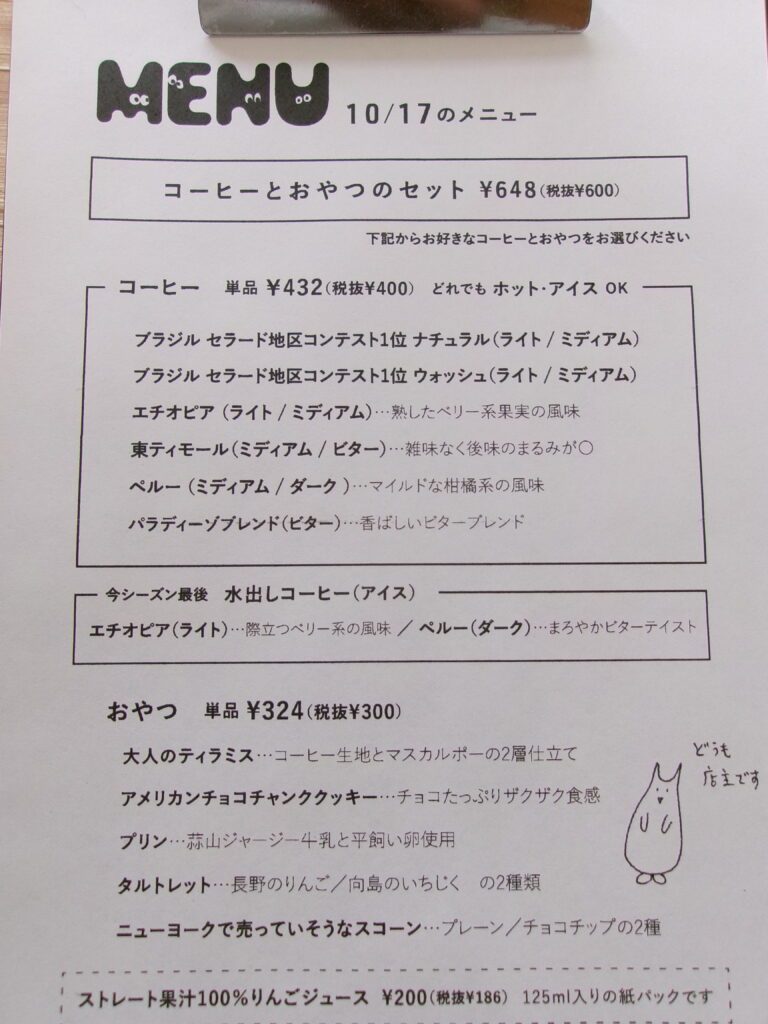 MENU 10/17のメニュー
コーヒーとおやつのセット ¥648(税抜¥600)
下記からお好きなコーヒーとおやつをお選びください
コーヒー 単品 ¥432(税抜¥400) どれでも ホット・アイス OK
ブラジル セラード地区コンテスト1位 ナチュラル(ライト / ミディアム)
ブラジル セラード地区コンテスト1位 ウォッシュ(ライト / ミディアム)
エチオピア (ライト / ミディアム)…熟したベリー系果実の風味
東ティモール(ミディアム / ビター)…雑味なく後味のまるみが〇
ペルー (ミディアム / ダーク )…マイルドな柑橘系の風味
パラディーゾブレンド(ビター)…香ばしいビターブレンド
今シーズン最後 水出しコーヒー(アイス)
エチオピア(ライト)…際立つベリー系の風味 / ペルー(ダーク)…まろやかビターテイスト
おやつ 単品 ¥324(税抜¥300)
大人のティラミス…コーヒー生地とマスカルポーの2層仕立て
アメリカンチョコチャンククッキー…チョコたっぷりザクザク食感
プリン…蒜山ジャージー牛乳と平飼い卵使用
タルトレット…長野のりんご/向島のいちじく の2種類
ニューヨークで売っていそうなスコーン…プレーン/チョコチップの2種
どうも
店主です
ストレート果汁100%りんごジュース ¥200(税抜¥186) 125ml入りの紙パックです